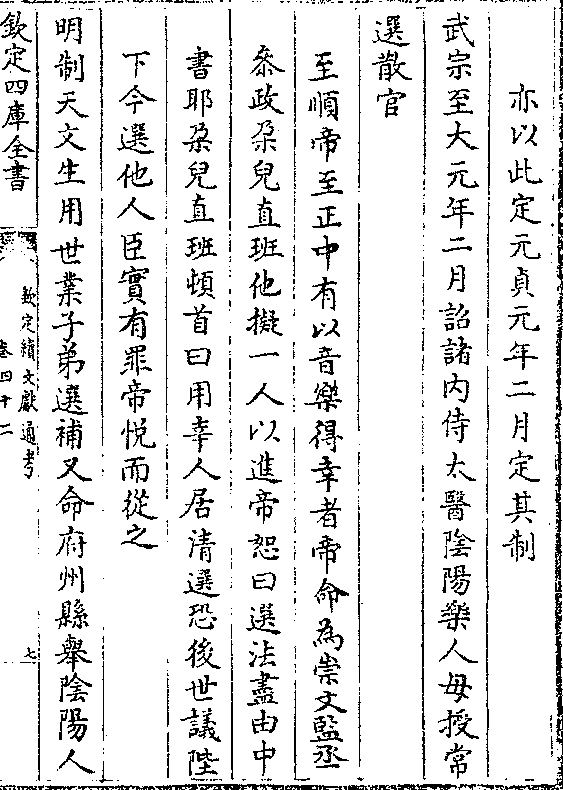 亦以此定元貞元年二月定其制
武宗至大元年二月詔諸内侍太醫陰陽樂人毋授常
選散官
至順帝至正中有以音樂得幸者帝命為崇文監丞
叅政朶兒直班他擬一人以進帝怒曰選法盡由中
書耶朶兒直班頓首曰用幸人居清選恐後世議陛
下今選他人臣實有罪帝悦而從之
明制天文生用世業子弟選補又命府州縣舉陰陽人
欽定四庫全書
欽定續文獻通考
卷四十二
七